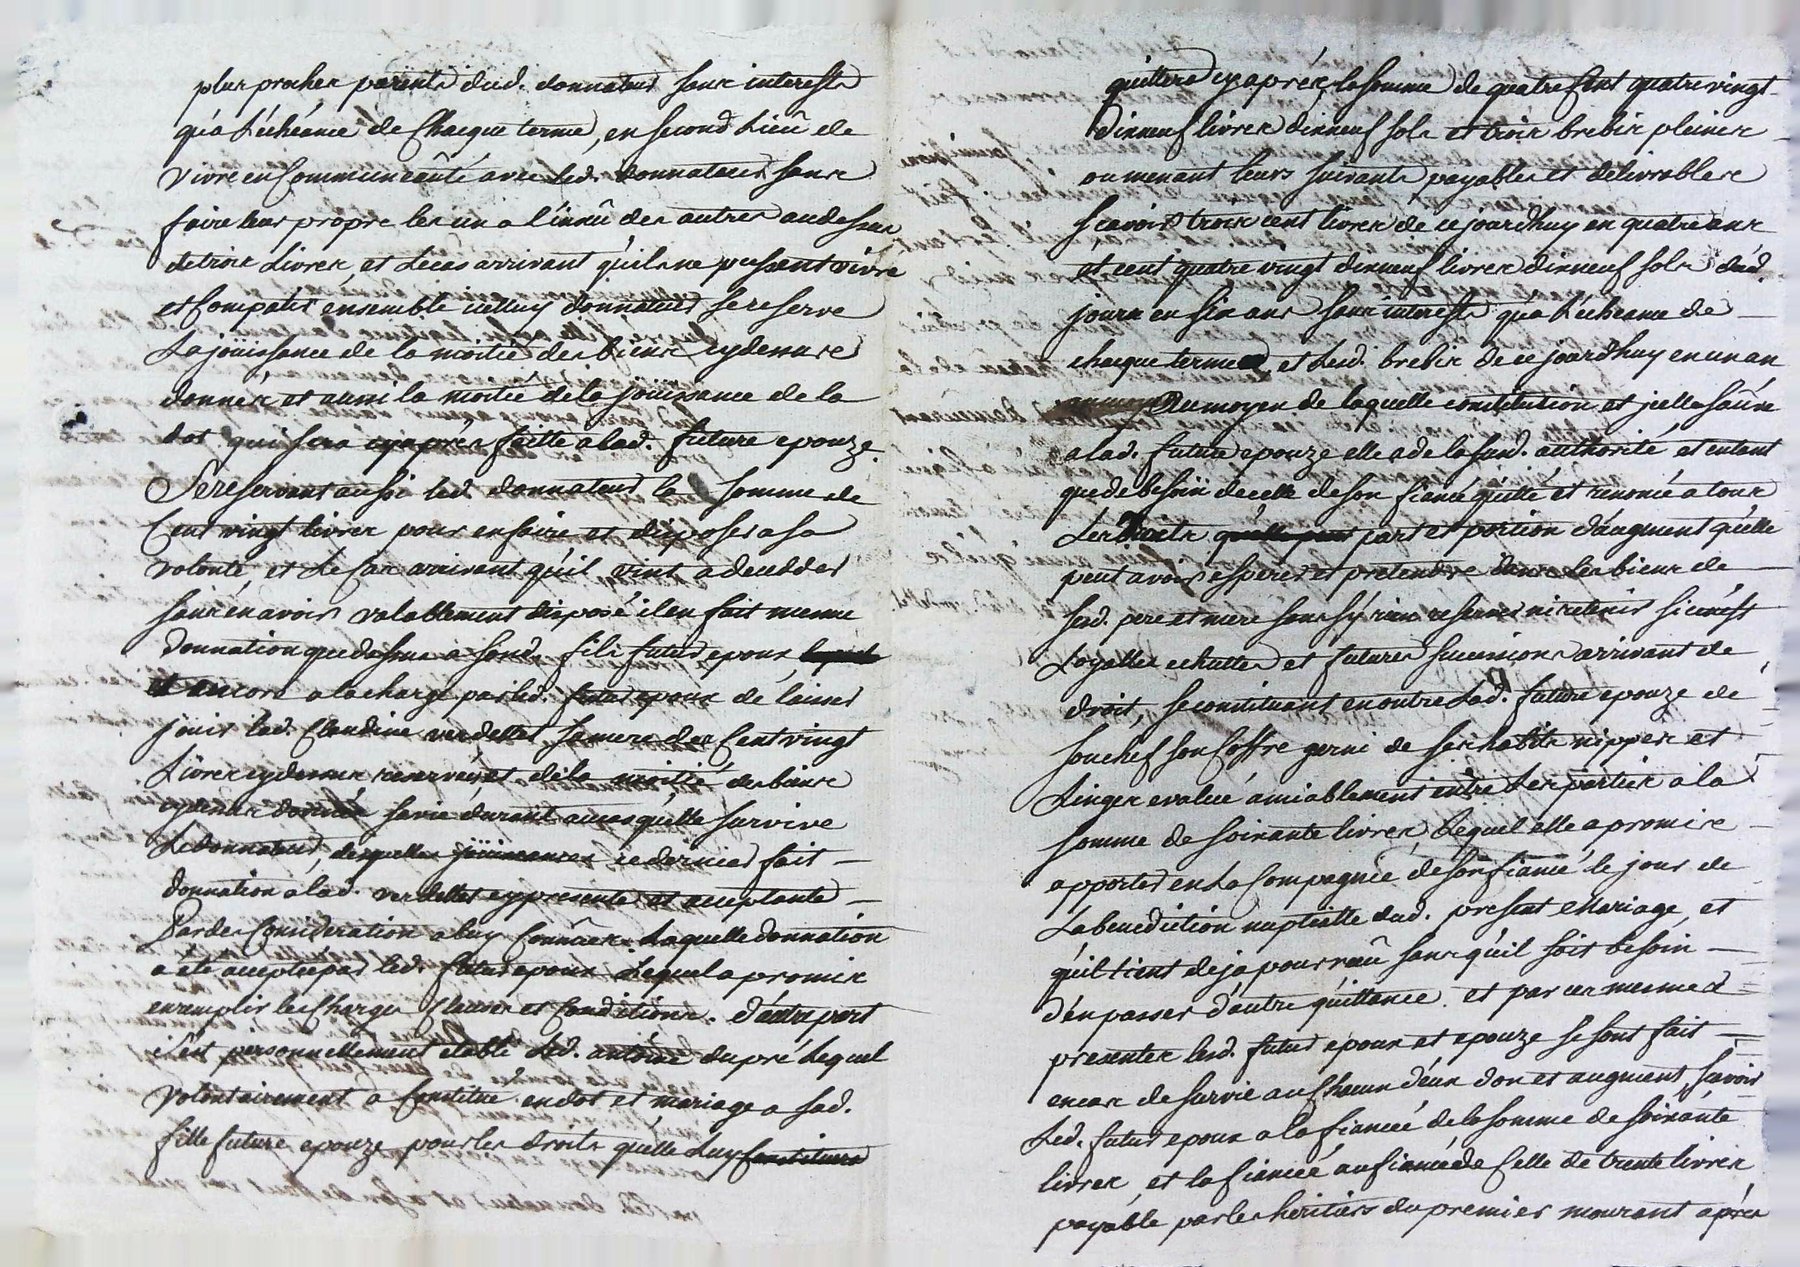 plus proches parents dud. donnateur sans interests
qu'a l'écheance de Chaque terme, en second Lieû de
Vivre en Commun avec led. donnateur sans
faire leur propre les un a l'insû des autres audessus
de trois Livres, et le cas arrivant qu'ils ne pussent vivre
et Compatir ensemble icelluy donnateur se reserve
La joüissance de la moitié des biens cydessus
donnés et aussi la moitié de la joüissance de la
dot qui sera cyaprés faitte a lad. future epouze.
Se reservant aussi led. donnateur la somme de
Cent vingt livres pour en faire et disposer a sa
volonté, et le Cas arrivant qu'il vint a decedder
sans en avoir valablement disposé il en fait mesme
donnation que dessus a sond. fils futur epoux
et encore a la charge par led. futur epoux de laisser
joüir lad. Claudine verdellet sa mere des Cent vingt
Livres cydessus reservés, et de la moitié des biens
cydessus donnés sa vie durant au cas qu'elle survive
Le donnateur, desquelles joüissances ce dernier fait
donnation a lad. verdellet cy presente et acceptante
Par des Consideration a luy Connües. Laquelle donnation
a été acceptée par led. futur epoux Lequel a promis
en remplir les Charges Clauses et Conditions. d'autre part
s'est personnellement etabli led. antoine dupré Lequel
volontairement a Constitué en dot et mariage a sad.
fille future epouze pour les droits qu'elle Luy
quittera cyaprés, la somme de quatre Cent quatre vingt
dixneuf livres dixneuf sols et trois brebis pleines
ou menant leurs suivants payables et delivrables
Scavoir trois cent livres de ce jourdhuy en quatre ans
et cent quatre vingt dixneuf livres dixneuf sols dud.
jour en six ans sans interests qu'a l'écheance de
chaque terme, et lesd. brebis de ce jourd'huy en un an
Au moyen de laquelle constitution et icelle sauve
a lad. future epouze elle a de la susd. authorité et entant
que de besoin de celle de son fiancé quitté et renoncé a tous
Les Droits part et portion d'augment qu'elle
peut avoir esperer et pretendre dans les biens de
sesd. pere et mere sans s'y rien reserver ni retenir si ce n'est
Loyalles echuttes et futures successions arrivant de
droit, se constituant en outre Lad. future epouze de
son chef son Coffre garni de ses habits nippes et
Linges evalué amiablement entre Les parties a la
somme de soixante livres, Lequel elle a promis
apporter en la Compagnie de son fiancé le jour de
La benediction nuptialle dud. present Mariage, et
qu'il tient deja pour reçû sans qu'il soit besoin
d'en passer d'autre quittance. et par ces mesmes
presentes lesd. futur epoux et epouze se sont fait
en cas de survie au Chacun d'eux don et augment, savoir
Led. futur epoux a la fiancée de la somme de soixante
livres, et la fiancée au fiancé de Celle de trente livres
payable par les héritiers du premier mourant aprés